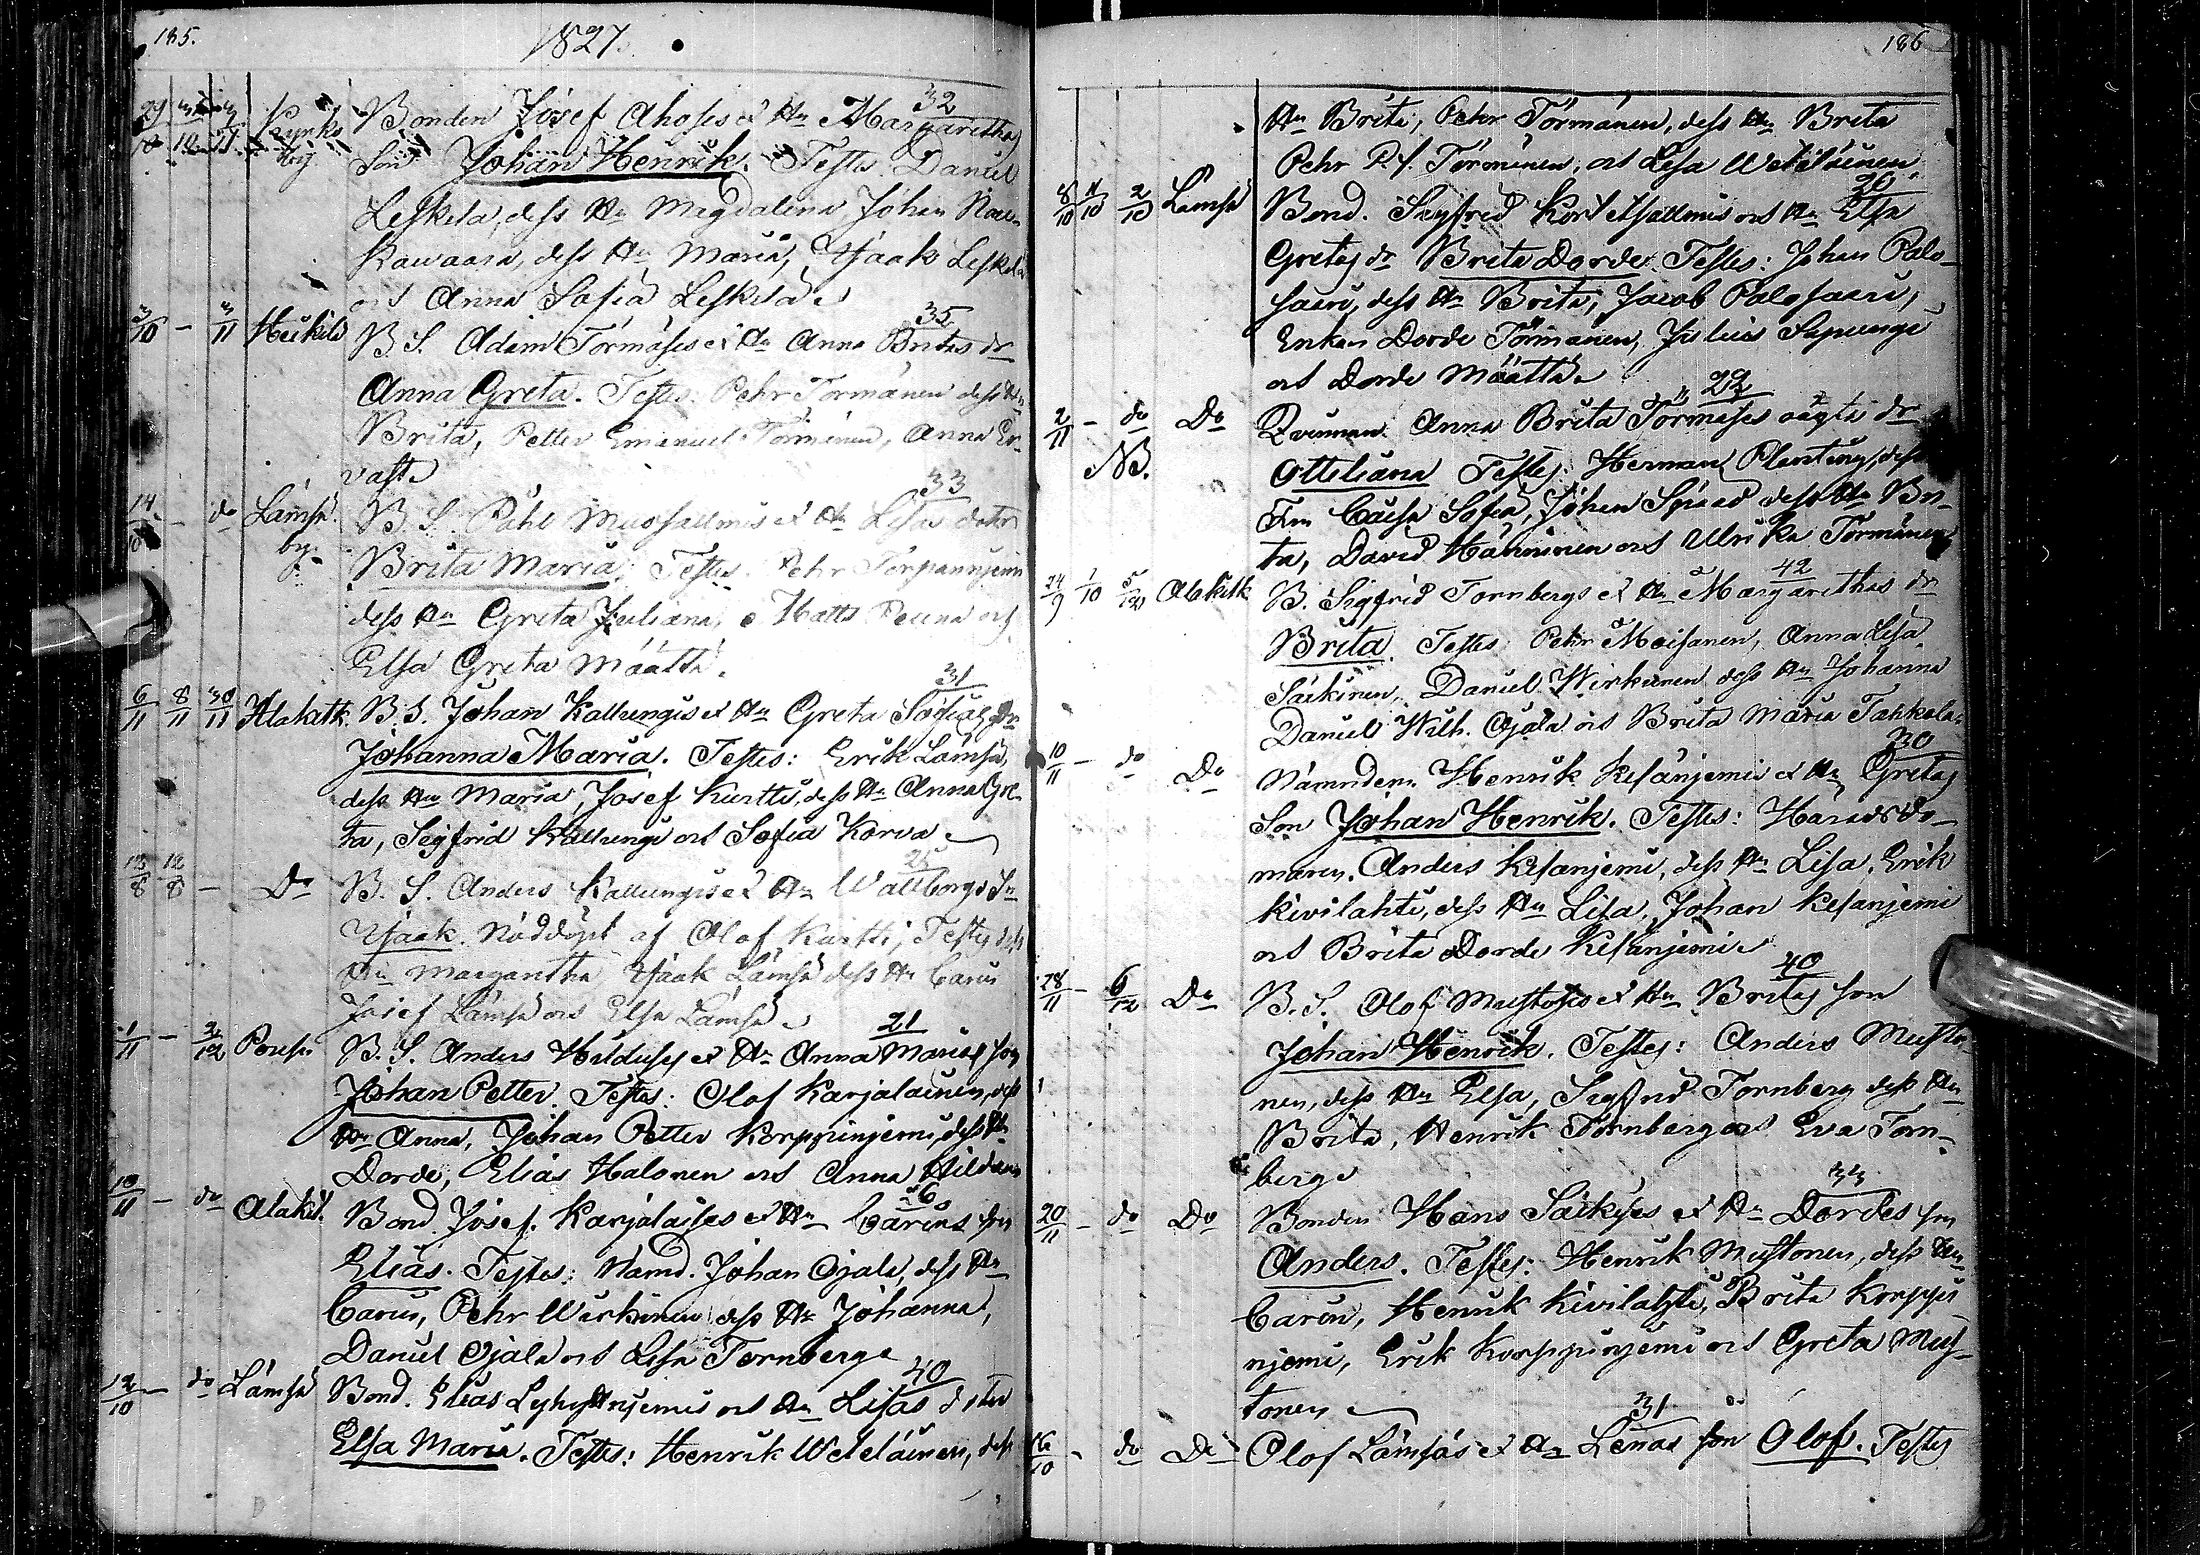 185.
1827.
32
Bonden Josef Ahoses et Hu Margarethas
Son Johan Henrik. Testes. Daniel
Leskela, dess Hu Magdalena, Johan
Kawaara, dess Hu Maria, Isaak Leskela
och Anna Sofia Leskela
3/10 – 3/11 Heikilä
35
B. S. Adam Törmäses et Hu Anna Britas dr
Anna Greta. Testes. Pehr Törmänen dess Hu
Brita, Petter Emanuel Törmänen, Anna Er-
vast
14/10 – do Lämsä by.
33
B. S. Påhl Musfallmis et Hu Lisas dotter
Brita Maria. Testes. Pehr
dess Hu Greta Juliana, Matts och
Elsa Greta Määttä.
6/11 8/11 30/11 Alakitk.
31
B. S. Johan Kallungis et Hu Greta Sofias dr
Johanna Maria. Testes: Erik Lämsä,
dess Hu Maria, Josef Kurtti, dess Hu Anna Gre-
ta, Sigfrid Kallungi och Sofia Korva
12/8 12/8 – Do
25
B. S. Anders Kallungis et Hu Wallborgs Sn
Isaak. Nöddöpt af Olof Kurtti, Testes dess
Hu Margaretha Isaak Lämsä dess Hu Carin
Josef Lämsä och Elsa Lämsä
1/11 – 2/12 Posio
21
B. S. Anders Hilduses et Hu Anna Marias son
Johan Petter. Testes: Olof Karjalainen, dess
Hu Anna, Johan Petter Korppinjemi, dess Hu
Dorde, Elias Halonen och Anna
10/11 – do Alakit.
Bond. Josef Karjalaises et Hu Carins son
Elias. Testes: Nämd. Johan Ojala, dess Hu
Carin, Pehr Wirkinen dess Hu Johanna,
Daniel Ojala och Lisa Tornberg
12/10 – do Lämsä
40
Bond. Elias och Hu Lisas dotter
Elsa Maria. Testes: Henrik Weteläinen, dess
186
Hu Brita, Pehr Törmänen, dess Hu Brita
Pehr P. S. Törmänen, och Lisa Weteläinen.
8/10 11/10 2/10 Lämsä
26
Bond. Sigfrid och Hu Elsa
Gretas dr Brita Dorde. Testes: Johan Palo-
saari, dess Hu Brita, Jacob Palosaari,
Enkan Dorde Törmänen, Julius Sepungi
och Dorde Määttä
2/11 – do Do
NB.
29
Qvinnan Anna Brita Törmäses oägta dr
Ottiliana Testes: Herman Planting, dess
Fru Caisa Sofia, Johan dess Hu Bri-
ta, David Hänninen och Ulrika Törmänen
24/9 1/10 5/12 Alakitk
42
B. Sigfrid Tornbergs et Hu Margarethas dr
Brita. Testes: Pehr Moisanen, Anna Lisa
Säikinen, Daniel Wirkunen dess Hu Johanna
Daniel Wilh. Ojala och Brita Maria Tahkola
10/11 – do Do
30
Nämndem. Henrik Kesänjemis et Hu Gretas
Son Johan Henrik. Testes: Häradsdo-
maren. Anders Kesänjemi, dess Hu Lisa, Erik
Kivilahti, dess Hu Lisa, Johan Kesänjemi
och Brita Dorde Kesänjemi
28/11 – 6/12 Do
40
B. S. Olof Mustoses et Hu Britas son
Johan Henrik. Testes: Anders Musto-
nen, dess Hu Elsa, Sigfrid Tornberg dess Hu
Brita, Henrik Tornberg och Eva Torn-
berg
20/11 – do Do
33
Bonden Hans Säikyes et Hu Dordes son
Anders. Testes: Henrik Mustonen, dess Hu
Carin, Henrik Kivilahti, Brita Korppi-
njemi, Erik Korppinjemi och Greta Mus-
tonen
16/10 – do Do
31
Olof Lämsäs et Hu Lenas son Olof. Testes